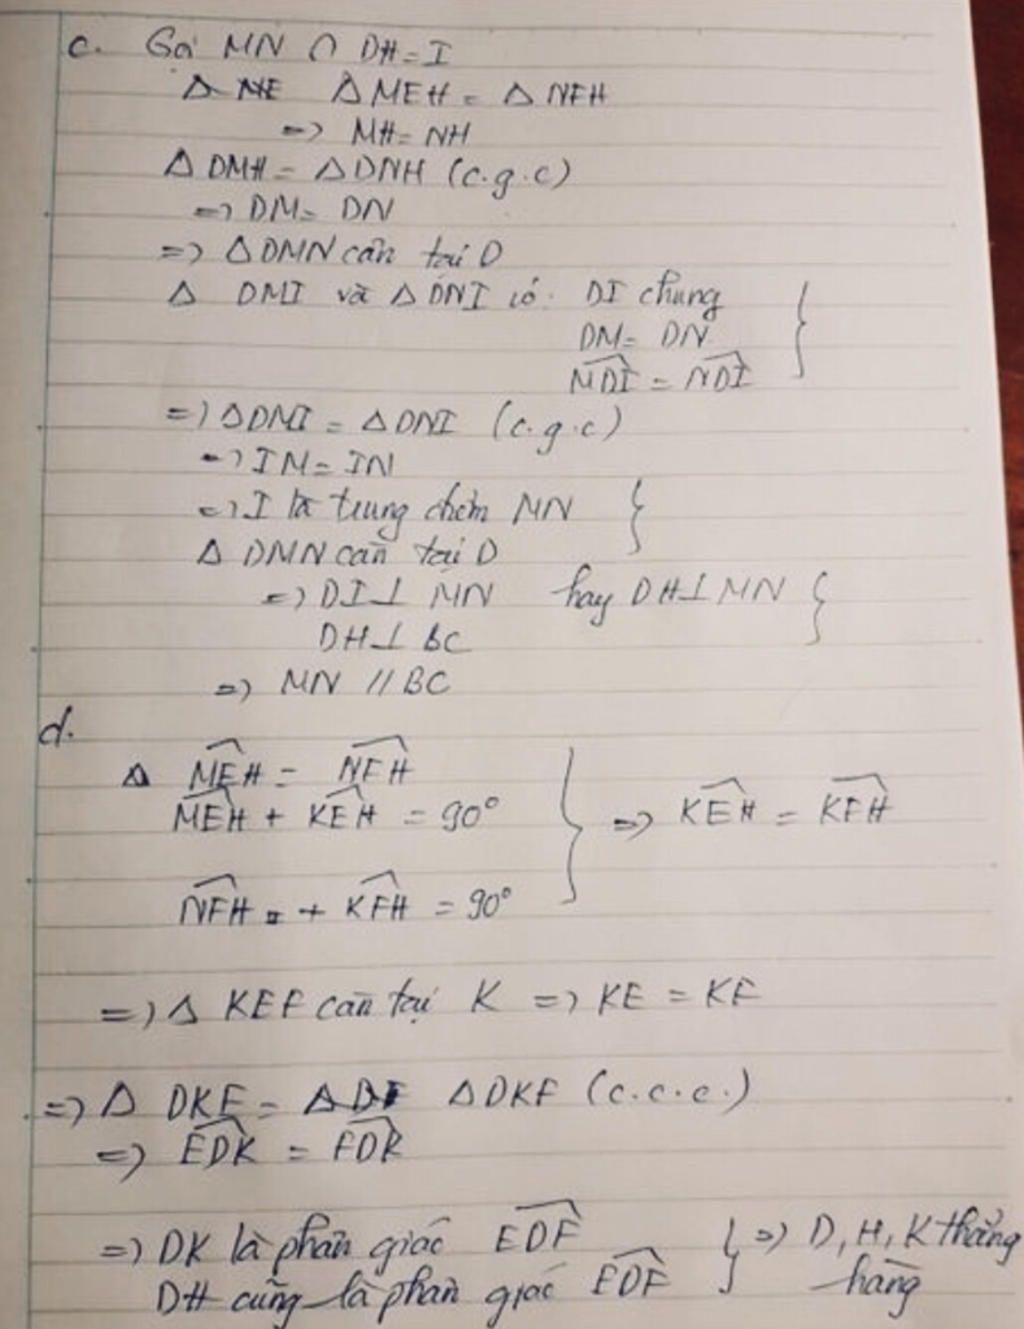 c. Gọi MN ∩ DH = I
△ MEH = △ NFH
=> MH = NH
△ DMH = △ DNH (c.g.c)
=> DM = DN
=> △ DMN cân tại D
△ DMI và △ DNI có: DI chung
DM = DN
MDI = NDI
=> △ DMI = △ DNI (c.g.c)
=> IM = IN
=> I là trung điểm MN
△ DMN cân tại D
=> DI ⊥ MN hay DH ⊥ MN
DH ⊥ BC
=> MN // BC
d.
△ MEH = NFH
MEH + KEH = 90° => KEH = KFH
NFH + KFH = 90°
=> △ KEF cân tại K => KE = KF
=> △ DKE = △ DKF (c.c.c.)
=> EDK = FDK
=> DK là phân giác EDF => D, H, K thẳng
DH cũng là phân giác EDF hàng